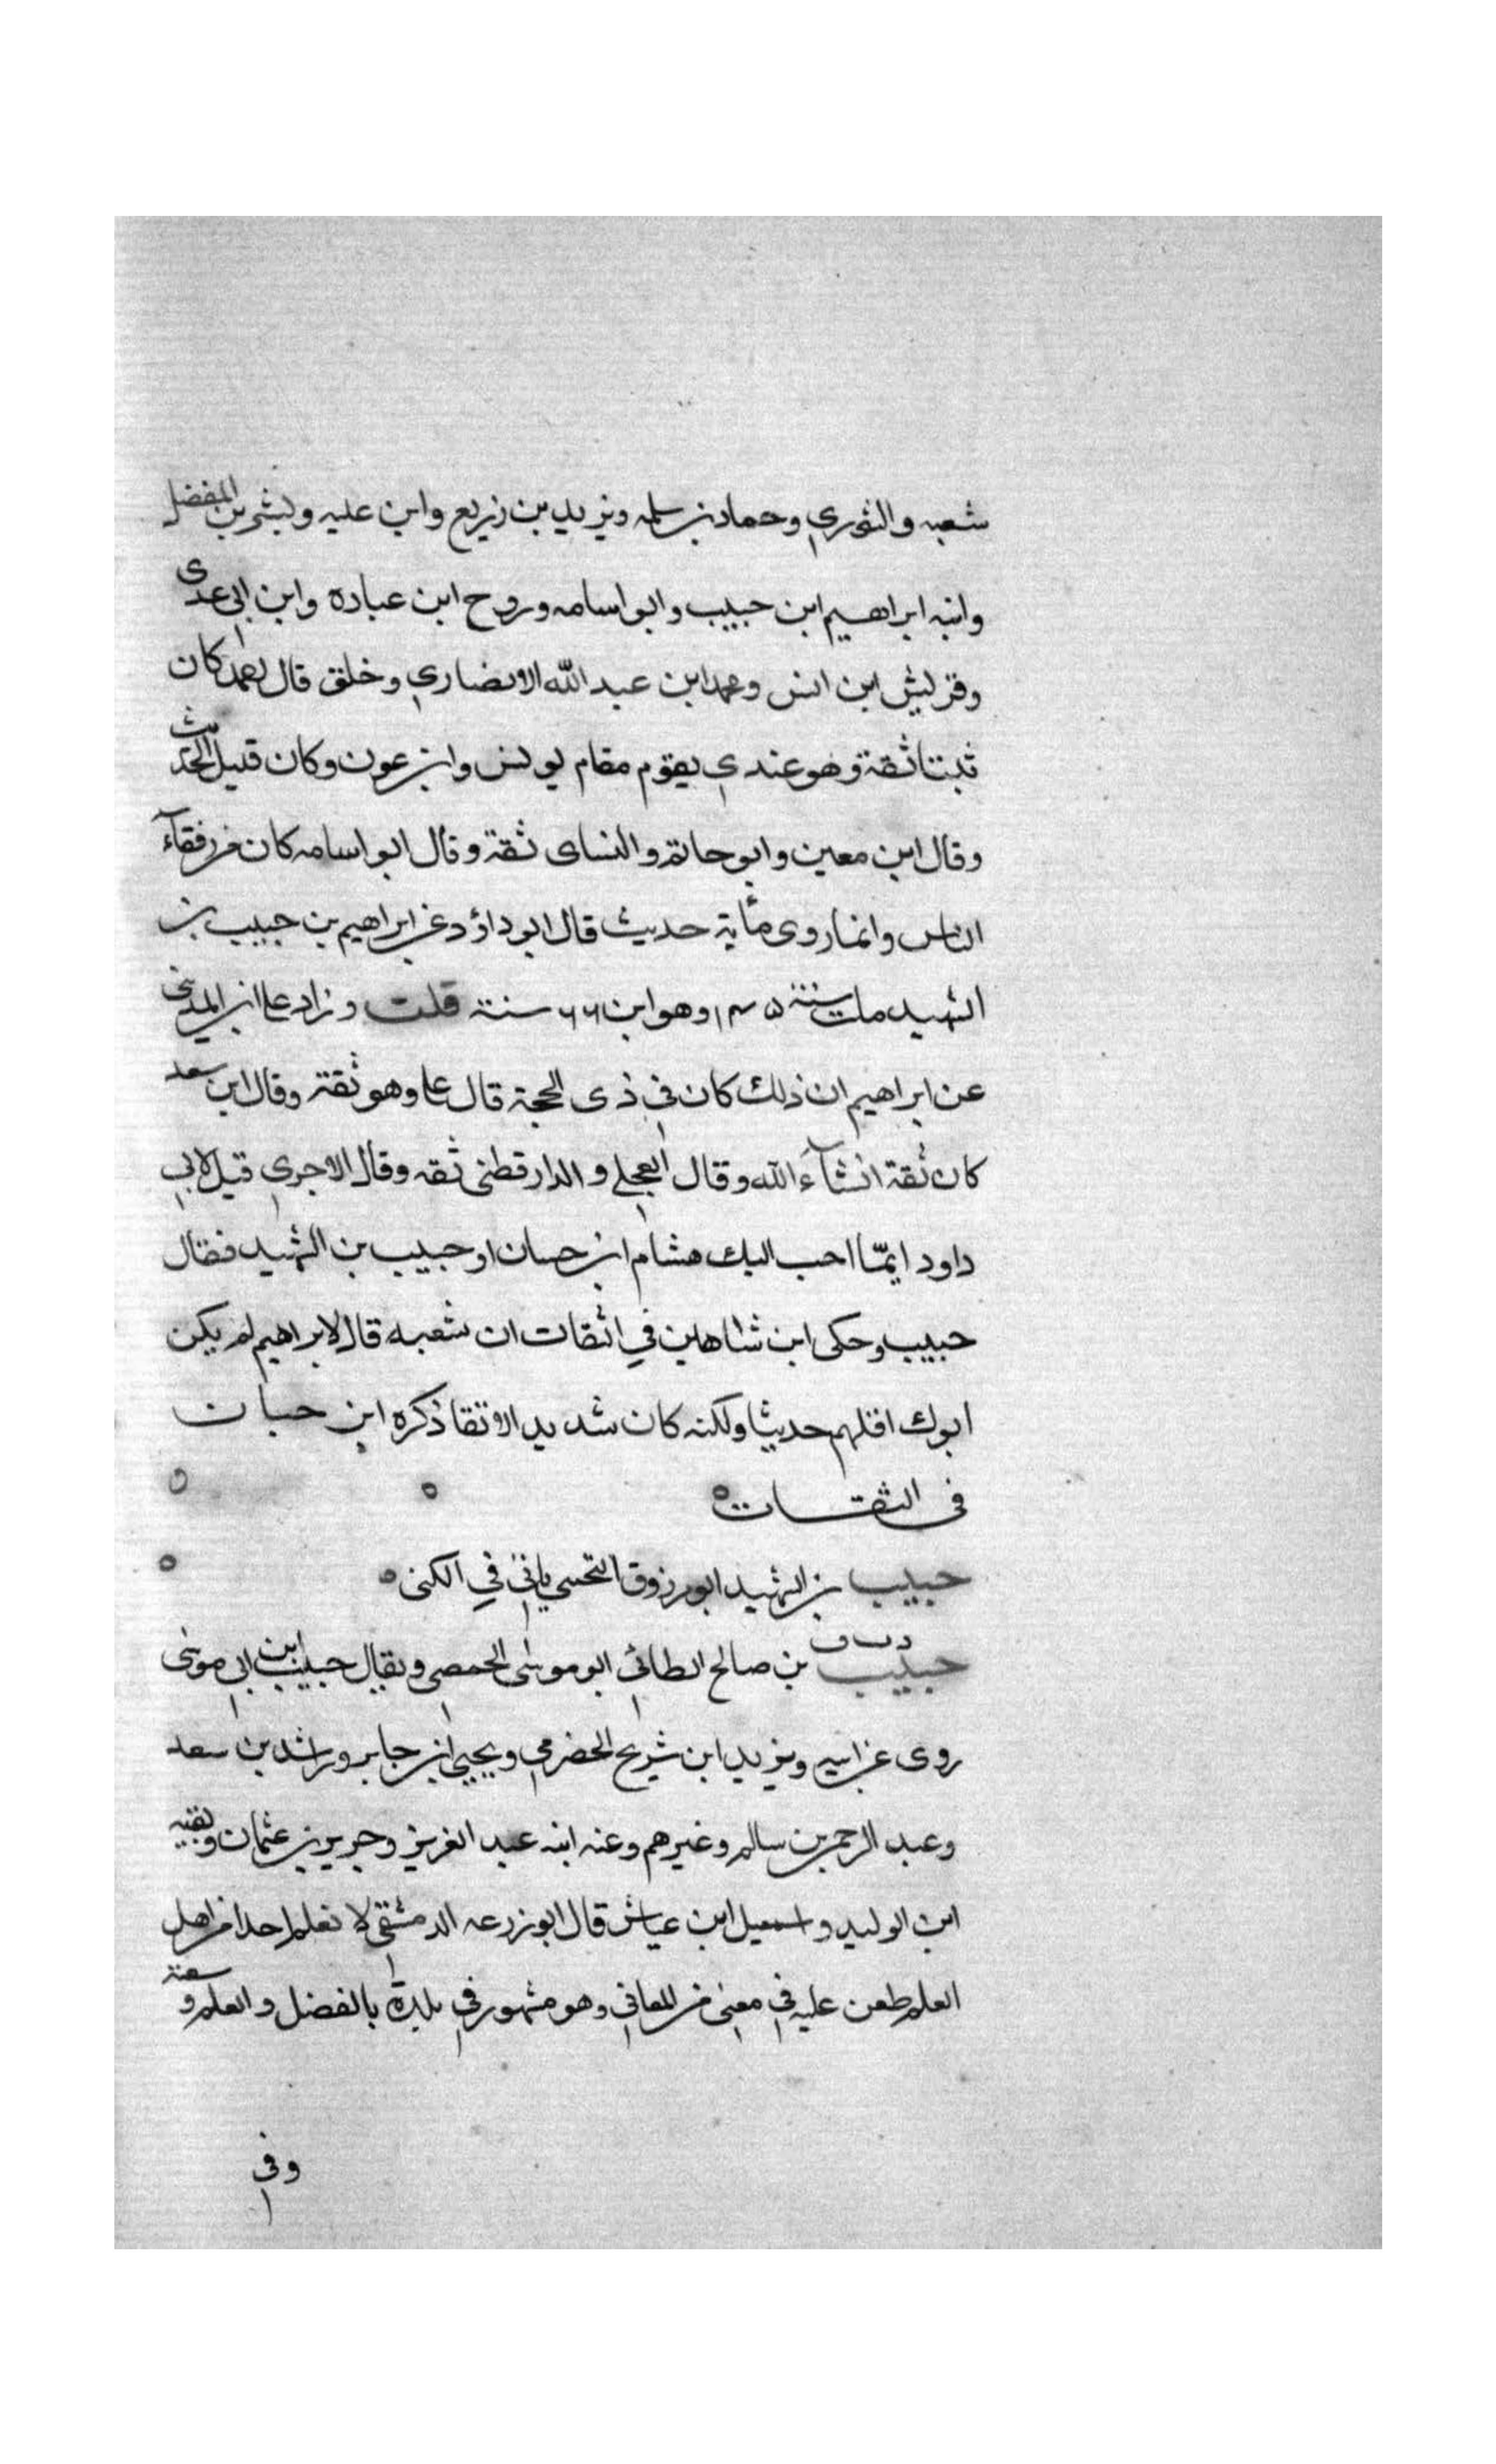 شعبه والثوري وحماد بن سلمه ويزيد بن زريع وابن عليه وبشر بن المفضل
وابنه ابراهيم ابن حبيب وابو اسامه وروح ابن عباده وابن ابى عدى
وقريش ابن انس ومحمد ابن عبد الله الانصاري وخلق قال احمد كان
ثبتا ثقة وهو عندي يقوم مقام يونس وابن عون وكان قليل الحديث
وقال ابن معين وابو حاتم والنساى ثقة وقال ابو اسامه كان من رفقآء
الناس وانما روى مأية حديث قال ابو داؤد عن ابراهيم بن حبيب بن
الشهيد مات سنة ١٤٥ وهو ابن ٦٦ سنة قلت وزاد على ابن المديني
عن ابراهيم ان ذلك كان في ذى الحجة قال على وهو ثقة وقال ابن سعد
كان ثقة انشآء الله وقال العجلي والدارقطنى ثقه وقال الاجري قيل لابي
داود ايمّا احب اليك هشام ابن حسان او حبيب بن الشهيد فقال
حبيب وحكى ابن شاهين في اثقات ان شعبه قال لابراهيم لم يكن
ابوك اقلهم حديثا ولكنه كان شديد الاتقا ذكره ابن حبان
فى الثقات
حبيب بن الشهيد ابو مرزوق التجيبي ياتي في الكنى
حبيب بن صالح الطائي ابو موسى الحمصي ويقال حبيب ابن ابى موسى
روى عن ابيه ويزيد ابن شريح الحضرمي ويحيى ابن جابر وراشد بن سعد
وعبد الرحمن بن سالم وغيرهم وعنه ابنه عبد العزيز وحريز بن عثمان وبقيه
ابن الوليد واسمعيل ابن عياش قال ابو زرعه الدمشقي لا نعلم احدا من اهل
العلم طعن عليه في معنى من المعاني وهو مشهور في بلده بالفضل والعلم و سعة
وفى